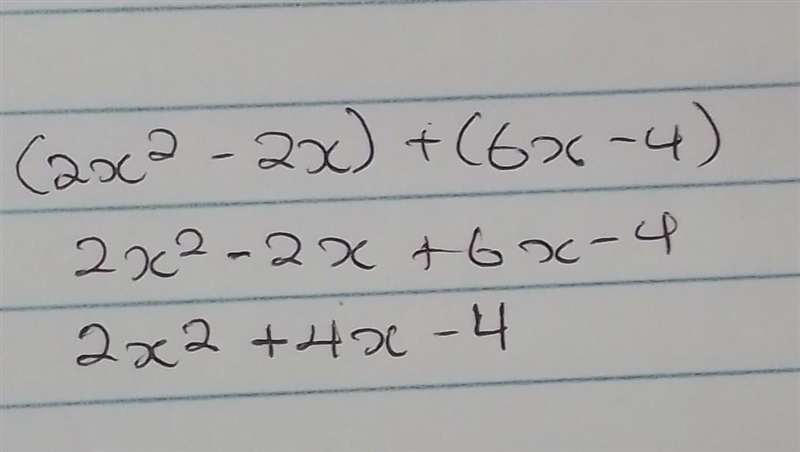 (2x² - 2x) + (6x - 4)
2x² - 2x + 6x - 4
2x² + 4x - 4